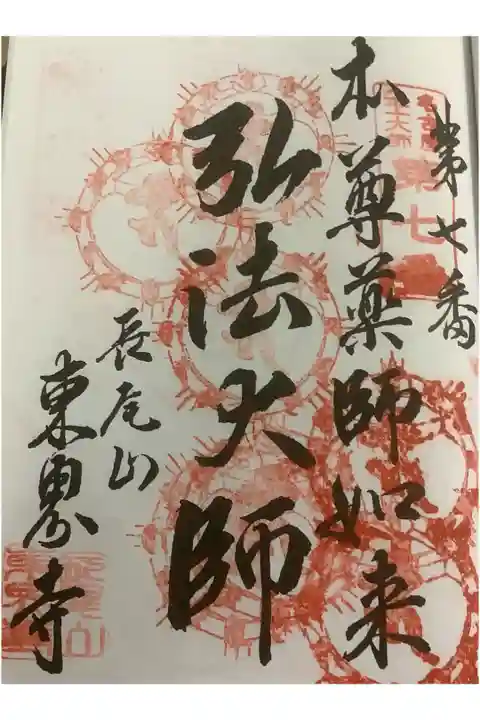 第七番
本尊薬師如来
弘法大師
長尾山
東界寺
第七